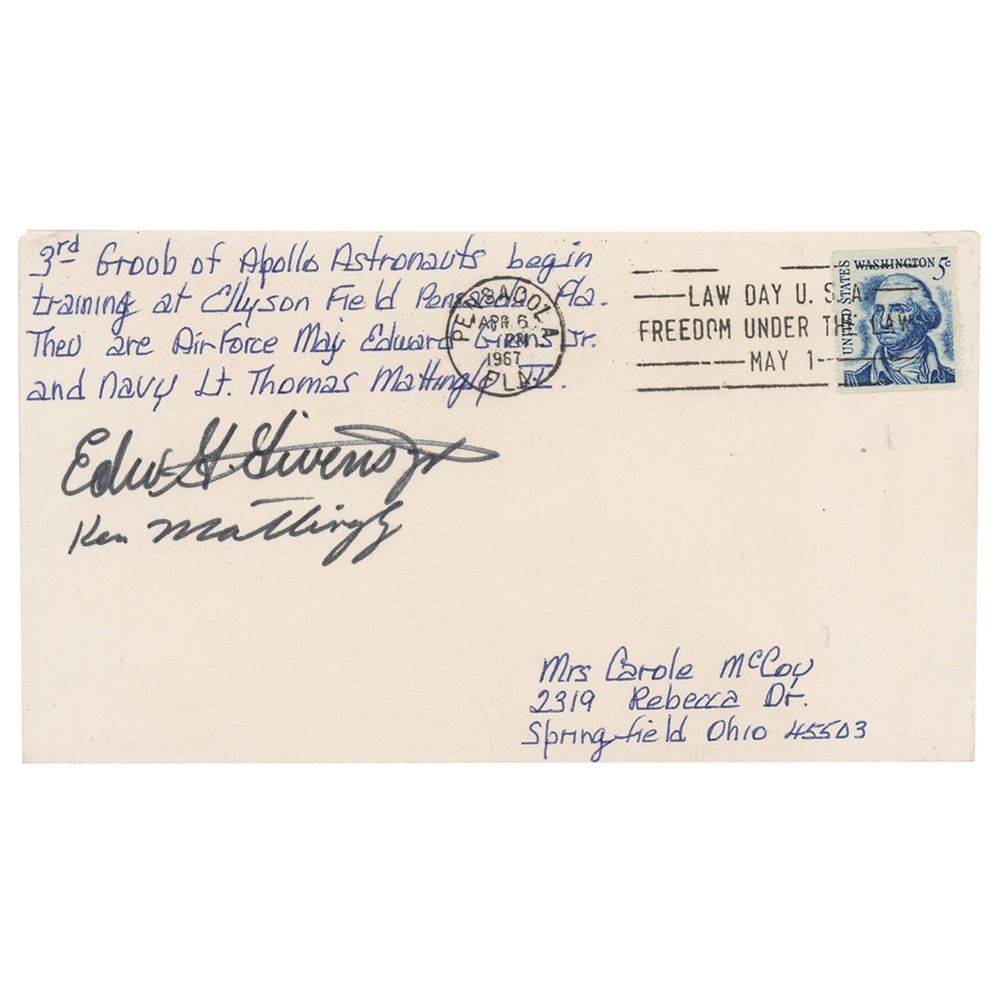 3rd Groob of Apollo Astronauts begin
training at Ellyson Field Pensacola Fla.
They are Air Force Maj Edward Givens Jr.
and Navy Lt. Thomas Mattingly II.
PENSACOLA
APR 6
PM
1967
FLA.
LAW DAY U. S. A.
FREEDOM UNDER THE LAW
MAY 1
UNITED STATES
WASHINGTON 5c
Edw. G. Givens Jr
Ken Mattingly
Mrs Carole McCoy
2319 Rebecca Dr.
Springfield Ohio 45503